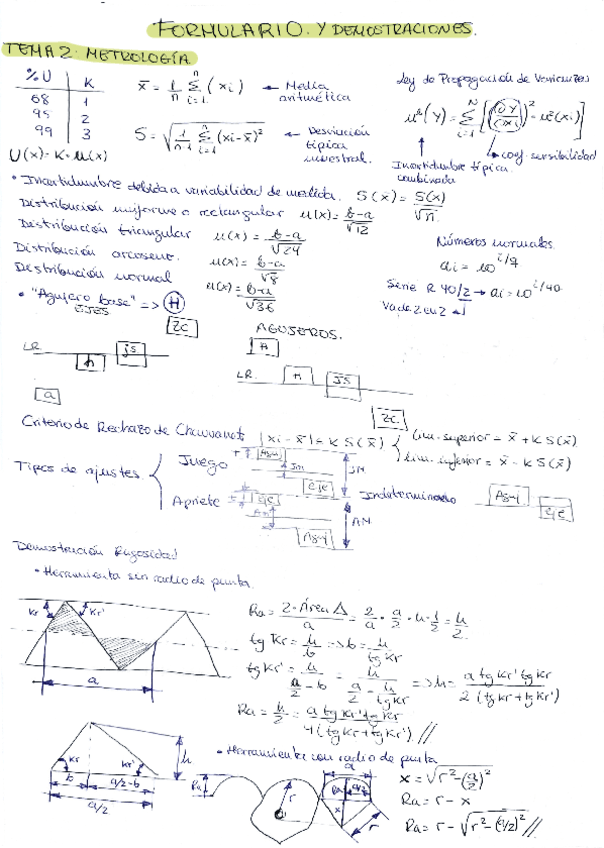 FORMULARIO. Y DEMOSTRACIONES.
TEMA 2. METROLOGÍA
%U K
68 1
95 2
99 3
U(x) = K · u(x)
x̄ = 1/n Σ_{i=1}^{n} (xi) ← Media aritmética
S = √(1/(n-1) Σ_{i=1}^{n} (xi-x̄)²) ← Desviación típica muestral.
Ley de Propagación de Varianzas
u²(Y) = Σ_{i=1}^{N} [(∂Y/∂xi)² · u²(xi)]
coef. sensibilidad
Incertidumbre típica combinada
• Incertidumbre debida a variabilidad de medida. S(x̄) = S(x)/√n.
Distribución uniforme o rectangular u(x) = b-a/√12
Distribución triangular u(x) = b-a/√24
Distribución arcoseno. u(x) = b-a/√8
Distribución normal u(x) = b-a/√36
Números normales.
ai = 10^{i/q}
Serie R 40/2 → ai = 10^{i/40}
Va de 2 en 2
• "Agujero base" => H
EJES
ZC
AGUJEROS.
H
LR.
js
h
LR.
H
JS
a
ZC
Criterio de Rechazo de Chauvanet |xi - x̄| = K S(x̄)
Lim. superior = x̄ + K S(x̄)
Lim. inferior = x̄ - K S(x̄)
Tipos de ajustes
Juego
Aguj
Jm
JM
Eje
Apriete
Eje
Am
AM
Aguj
Indeterminado
Aguj
Eje
Demostración Rugosidad
• Herramienta sin radio de punta.
Kr Kr'
a
Ra = 2·Área Δ/a = 2/a · a/2 · h · 1/2 = h/2
tg Kr = h/b => b = h/tg Kr
tg Kr' = h/(a/2 - b) = h/(a/2 - h/tg Kr) => h = a tg Kr' tg Kr/2 (tg Kr + tg Kr')
Ra = h/2 = a tg Kr' tg Kr/4 (tg Kr + tg Kr') //
Kr Kr' h
b a/2-b
a/2
• Herramienta con radio de punta
a
Ra
r
Ra a/2
x
r
x = √(r² - (a/2)²)
Ra = r - x
Ra = r - √(r² - (a/2)²) //